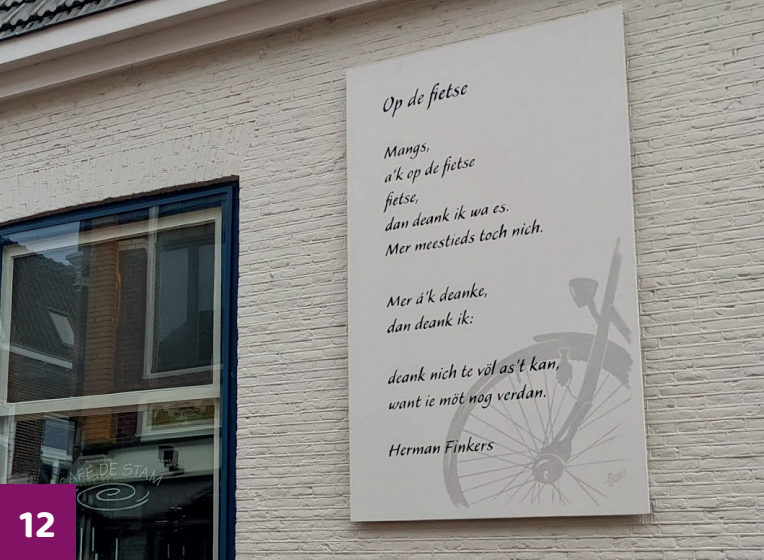 Op de fietse
Mangs,
a'k op de fietse
fietse,
dan deank ik wa es.
Mer meestieds toch nich.
Mer á'k deanke,
dan deank ik:
deank nich te völ as't kan,
want ie möt nog verdan.
Herman Finkers
DE STAM
12